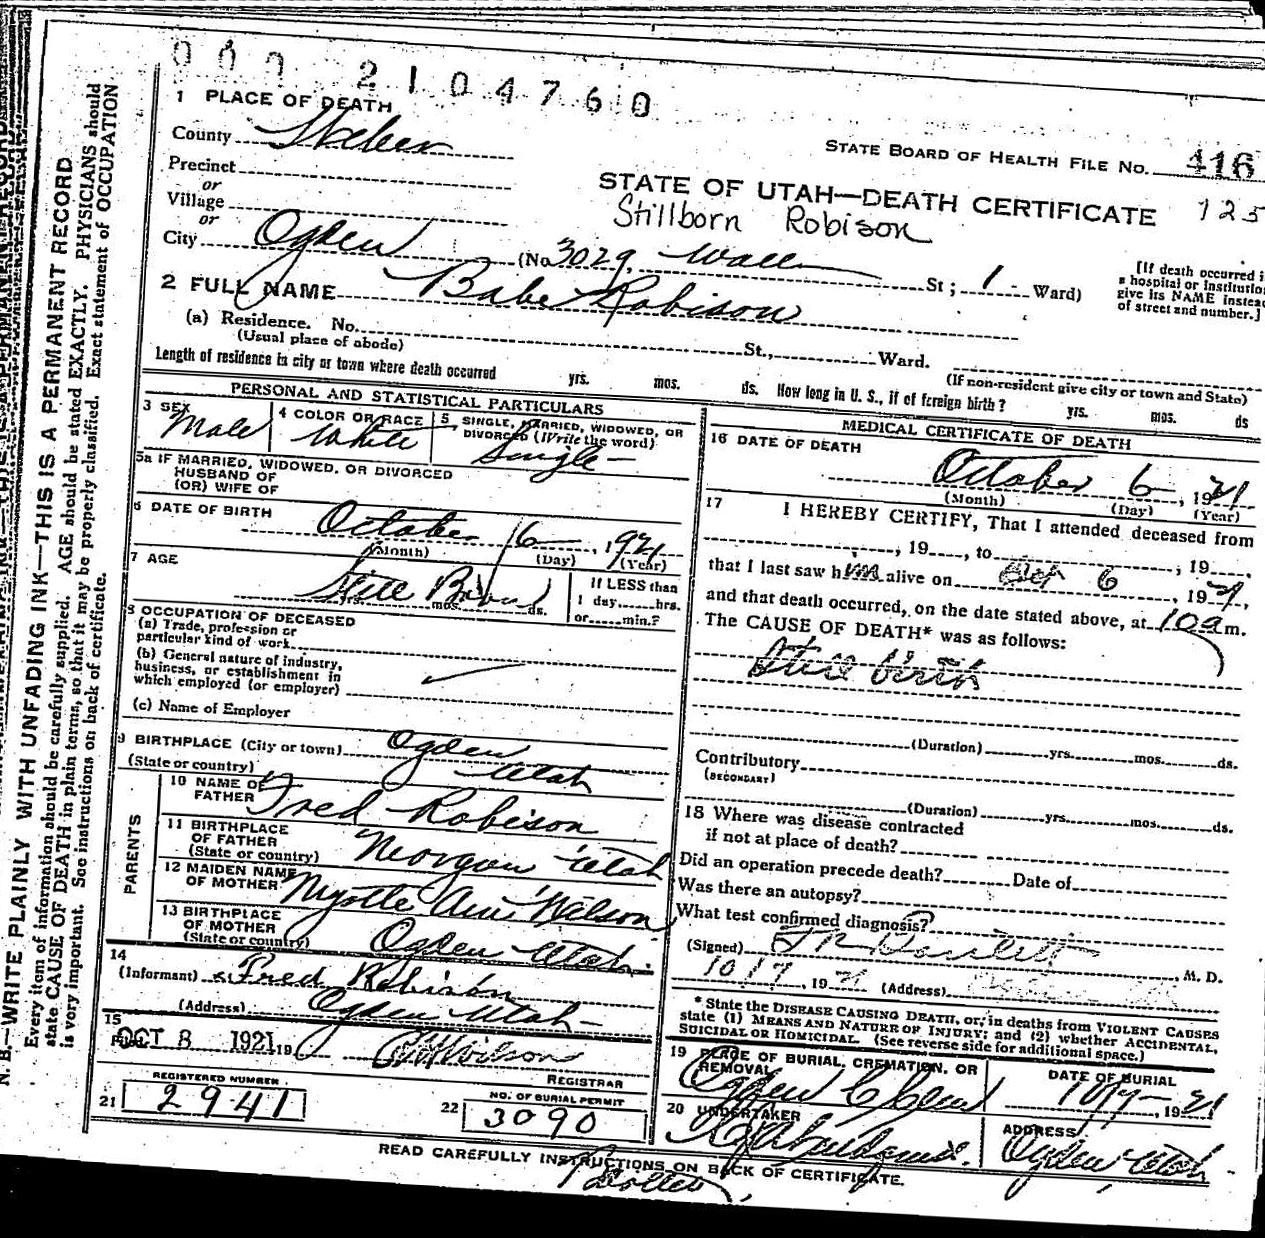 000 2104760
1 PLACE OF DEATH
County Weber
STATE BOARD OF HEALTH FILE NO. 416
Precinct
or
STATE OF UTAH—DEATH CERTIFICATE 125
Village
or
Stillborn Robison
City Ogden (No. 3029 Wall St; 1 Ward)
[If death occurred
a hospital or institution
give its NAME instead
of street and number.]
2 FULL NAME Babe Robison
(a) Residence. No. St., Ward.
(Usual place of abode)
(If non-resident give city or town and State)
Length of residence in city or town where death occurred yrs. mos. ds. How long in U. S., if of foreign birth? yrs. mos. ds
PERSONAL AND STATISTICAL PARTICULARS
3 SEX Male
4 COLOR OR RACE White
5, SINGLE, MARRIED, WIDOWED, OR
DIVORCED (Write the word)
Single
5a IF MARRIED, WIDOWED, OR DIVORCED
HUSBAND OF
(OR) WIFE OF
6 DATE OF BIRTH
October 6 1921
(Month) (Day) (Year)
7 AGE
Still Born
yrs. mos. ds.
If LESS than
1 day, hrs.
or min.?
8 OCCUPATION OF DECEASED
(a) Trade, profession or
particular kind of work
(b) General nature of industry,
business, or establishment in
which employed (or employer)
(c) Name of Employer
9 BIRTHPLACE (City or town) Ogden
(State or country) Utah
PARENTS
10 NAME OF
FATHER Fred Robison
11 BIRTHPLACE
OF FATHER
(State or country) Morgan Utah
12 MAIDEN NAME
OF MOTHER Myrtle Ann Wilson
13 BIRTHPLACE
OF MOTHER
(State or country) Ogden Utah.
14
(Informant) Fred Robison
(Address) Ogden Utah
15
Filed OCT 8 1921 19
Wilson
REGISTRAR
REGISTERED NUMBER
21 2941
NO. OF BURIAL PERMIT
22 3090
MEDICAL CERTIFICATE OF DEATH
16 DATE OF DEATH
October 6, 1921
(Month) (Day) (Year)
17 I HEREBY CERTIFY, That I attended deceased from
, 19 , to , 19 .
that I last saw him alive on Oct 6, 1921,
and that death occurred, on the date stated above, at 10 a m.
The CAUSE OF DEATH* was as follows:
Still birth
(Duration) yrs. mos. ds.
Contributory
(SECONDARY)
(Duration) yrs. mos. ds.
18 Where was disease contracted
if not at place of death?
Did an operation precede death? Date of
Was there an autopsy?
What test confirmed diagnosis?
(Signed) Bartlett M. D.
10/7, 1921 (Address)
* State the DISEASE CAUSING DEATH, or, in deaths from VIOLENT CAUSES
state (1) MEANS AND NATURE OF INJURY; and (2) whether ACCIDENTAL,
SUICIDAL OR HOMICIDAL. (See reverse side for additional space.)
19 PLACE OF BURIAL, CREMATION, OR
REMOVAL
Ogden
DATE OF BURIAL
10/7, 1921
20 UNDERTAKER
ADDRESS
Ogden Utah
READ CAREFULLY INSTRUCTIONS ON BACK OF CERTIFICATE.
N. B.—WRITE PLAINLY WITH UNFADING INK—THIS IS A PERMANENT RECORD
Every item of information should be carefully supplied. AGE should be stated EXACTLY. PHYSICIANS should
state CAUSE OF DEATH in plain terms, so that it may be properly classified. Exact statement of OCCUPATION
is very important. See instructions on back of certificate.